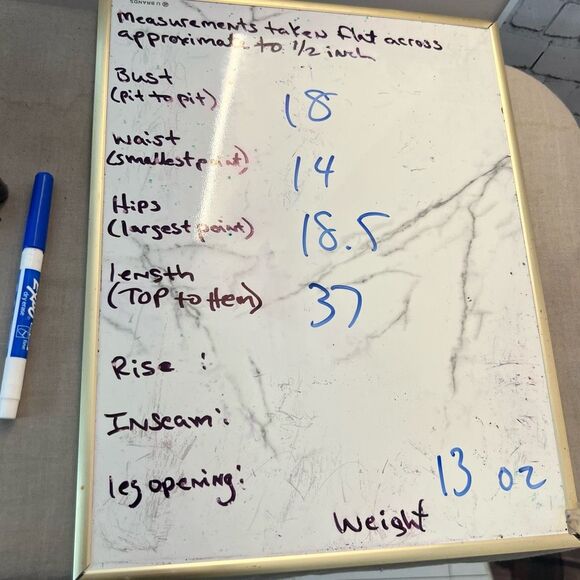 U BRANDS
measurements taken flat across
approximate to 1/2 inch
Bust
(pit to pit) 18
waist
(smallest point) 14
Hips
(largest point) 18.5
length
(TOP to Hem) 37
Rise :
Inseam:
leg opening:
13 oz
Weight
EXPO
dry erase